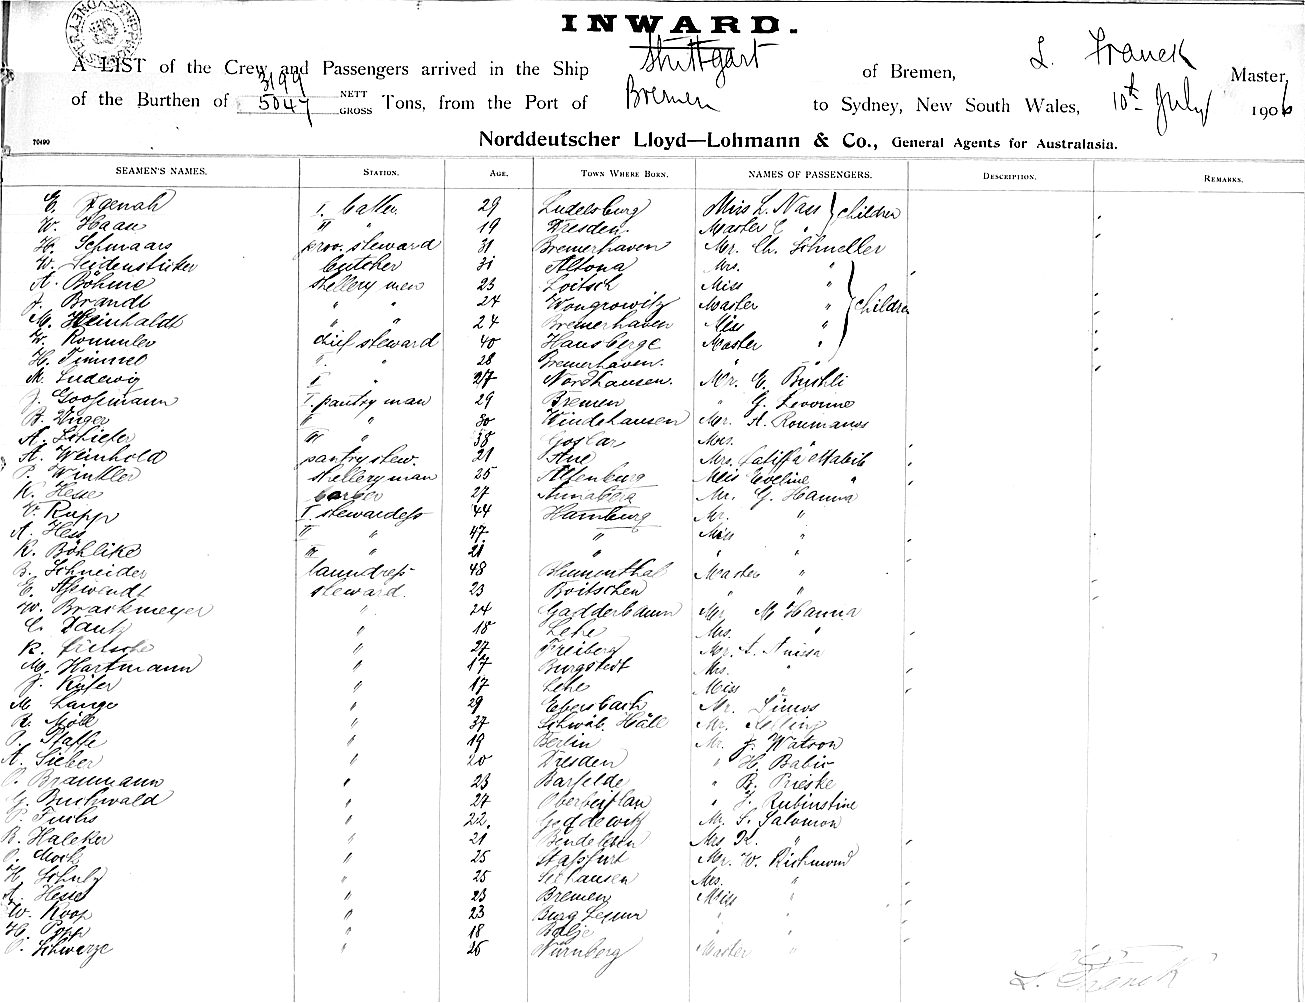 INWARD.
A LIST of the Crew and Passengers arrived in the Ship Stuttgart of Bremen, L. Franck Master,
of the Burthen of 3199 5047 NETT GROSS Tons, from the Port of Bremen to Sydney, New South Wales, 10th July 1906
70490 Norddeutscher Lloyd—Lohmann & Co., General Agents for Australasia.
SEAMEN'S NAMES. STATION. AGE. TOWN WHERE BORN. NAMES OF PASSENGERS. DESCRIPTION. REMARKS.
E. I. 29 Ludelsburg Miss L. Nass children
W. Haan II " 19 Dresden. Master E "
H. Schmaars prov. steward 31 Bremerhaven Mr. Ch. Schneller
W. Leidensticker butcher 31 Altona Mrs. "
A. Böhme stellery men 23 Loitsch Miss "
J. Brandt " " 24 Wongrowitz Master " children
M. Heinhaldt " " 24 Bremerhaven Miss "
W. Rommler chief steward 40 Hausberge Master "
H. Timmel I. " 28 Bremerhaven. " "
M. Ludewig I " 27 Nordhausen. Mr. E. Bushli
J. Goossmann I. pantry man 29 Bremen " G.
B. Unger II " 30 Windehausen Mr. A. Roumanss
A. Schiefer III " 38 Goslar Mrs. "
A. Weinhold pantry stew. 21 Aue Mrs. Latiffa Habib
P. Winkler stellery man 25 Altenburg Miss Eveline "
K. Hesse barber 27 Annaberg Mr. G. Hanna
V. Rupp I stewardess 44 Hamburg Mr. "
A. Hess II " 47. " Miss "
R. Böhlike III " 21 " " "
B. Schneider laundress 48 Blumenthal Master "
E. Asswendt steward. 23 Boitschen " "
W. Brackmeyer " 24 Gadderbaum Mr M Hanna
C. " 18 Lehe Mrs. "
R. " 27 Freiberg Mr. A.
M. Hartmann " 17 Burgstedt Mrs. "
J. Küfer " 17 Lehe Miss "
M Lange " 29 Ebersbach Mr. Simos
R. Möll " 37 Schwäb. Hall Mr. Kelling
P. Pfaffe " 19 Berlin Mr. J. Watson
A. Sieber " 20 Dresden " H. Babiv
O. Braumann " 23 Barfelde " B. Prieske
G. Buchwald " 27 Oberbeitlau " J. Rubinstine
P. Fuchs " 22. Geddewitz Mr. S. Salomon
B. Haleker " 21 Bendeleben Mrs K. "
P. Mock " 25 Stassfurt Mr. W. Richmond
H. Schulz " 25 Seehausen Mrs. "
A. Hesse " 23 Bremen Miss "
W. Koop " 23 Burg Lesum " "
H. Popp " 18 Balje " "
P. Schwarze " 26 Nürnberg Master "
L. Franck